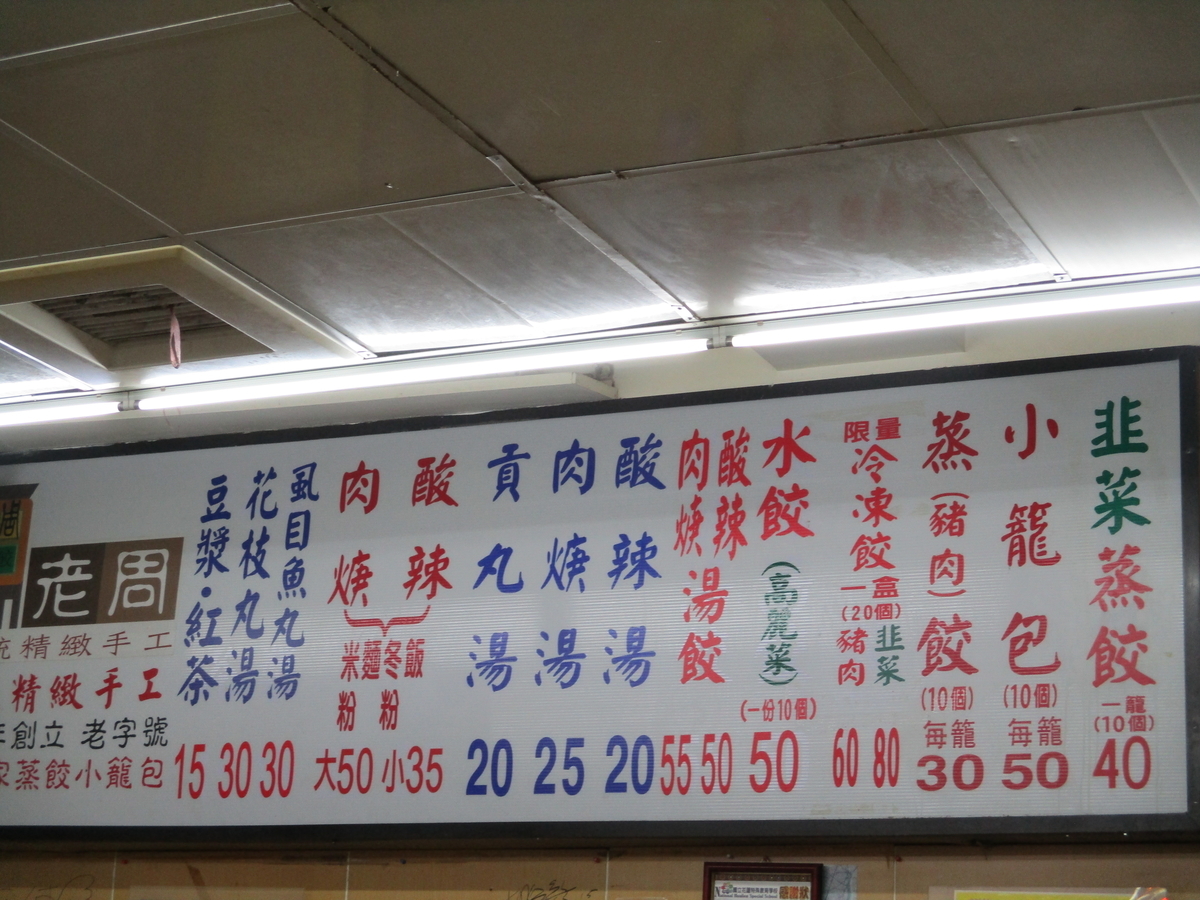 韭菜蒸餃
一籠
(10個)
40
小籠包
(10個)
每籠
50
蒸(豬肉)餃
(10個)
每籠
30
限量
冷凍餃
一盒
(20個)
豬肉 韭菜
60 80
水餃
(高麗菜)
(一份10個)
50
酸辣 肉焿
湯餃
55 50
酸辣湯
20
肉焿湯
25
貢丸湯
20
酸辣
肉焿
飯
冬粉
麵
米粉
大50 小35
虱目魚丸湯
30
花枝丸湯
30
豆漿·紅茶
15
老周
統精緻手工
精緻手工
年創立 老字號
家蒸餃小籠包
感謝狀